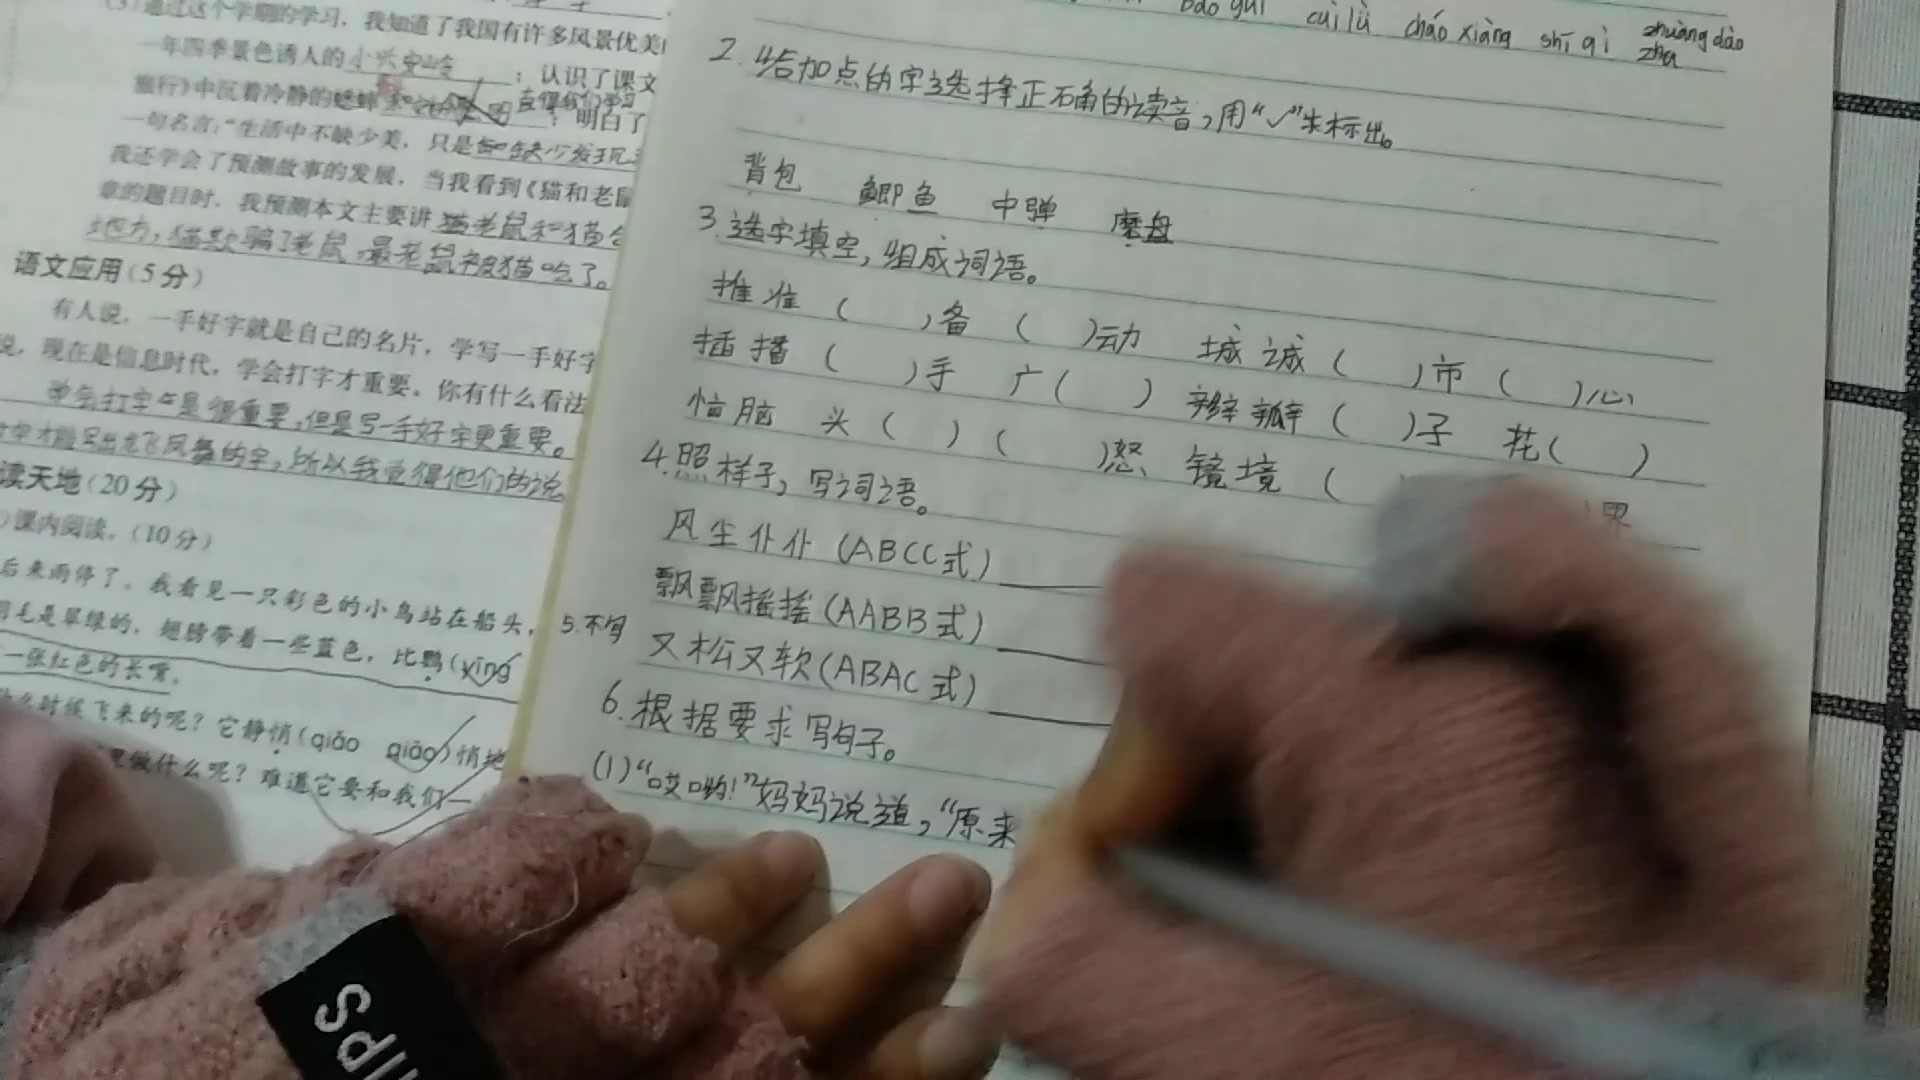 (3)通过这个学期的学习，我知道了我国有许多风景优美
一年四季景色诱人的小兴安岭；认识了课文
旅行》中沉着冷静的蟋蟀 值得我们学习；明白了
一句名言："生活中不缺少美，只是缺少发现
我还学会了预测故事的发展，当我看到《猫和老鼠
章的题目时，我预测本文主要讲
地方，猫欺骗了老鼠，最老鼠被猫吃了。
语文应用(5分)
有人说，一手好字就是自己的名片，学写一手好字
说，现在是信息时代，学会打字才重要。你有什么看法
学会打字是很重要，但是写一手好字更重要。
才能写出龙飞凤舞的字，所以我觉得他们的说
读天地(20分)
)课内阅读。(10分)
后来雨停了，我看见一只彩色的小鸟站在船头，
羽毛是翠绿的，翅膀带着一些蓝色，比鹦(yīng
一张红色的长嘴。
什么时候飞来的呢？它静悄(qiāo qiǎo)悄地
里做什么呢？难道它要和我们一
bāo guǐ cuì lǜ cháo xiàng shī qì zhuàng dào
zha
2.给加点的字选择正确的读音，用"√"标出。
背包 鲫鱼 中弹 磨盘
3.选字填空，组成词语。
推 准 ( )备 ( )动 城 诚 ( )市 ( )心
插 播 ( )手 广( ) 辫 瓣 ( )子 花( )
恼 脑 头( ) ( )怒 镜 境 (
4.照样子，写词语。
风尘仆仆(ABCC式)
飘飘摇摇(AABB式)
5.不写
又松又软(ABAC式)
6.根据要求写句子。
(1)"哎哟!"妈妈说道，"原来